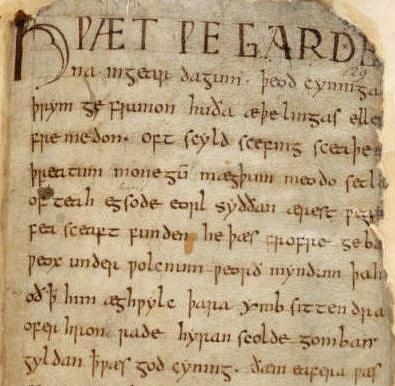 HǷÆT ǷE GARDE
129
na ingear dagum. þeod cyninga
þrym ge frunon huða æþelingas elle
fre medon. oft scyld scefing sceaþe
þreatum monegū mægþum meodo setla
of teah egsode eorl syððan ærest ƿea
fea sceaft funden he þæs frofre geba
ƿeox under ƿolcnum ƿeorð myndum þah
oð ꝥ him æghƿylc þara ymb sittendra
ofer hron rade hyran scolde gomban
gyldan ꝥ ƿæs god cyning. ðæm eafera ƿæs